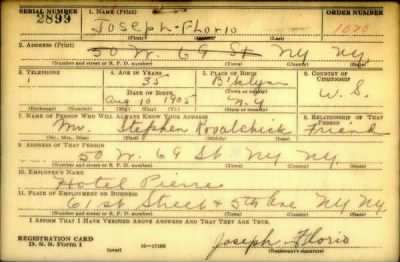 SERIAL NUMBER 1. NAME (Print) ORDER NUMBER
2899 Joseph - Florio 1070
(First) (Middle) (Last)
2. ADDRESS (Print)
50 W. 69 St NY NY.
(Number and street or R. F. D. number) (Town) (County) (State)
3. TELEPHONE 4. AGE IN YEARS 5. PLACE OF BIRTH 6. COUNTRY OF CITIZENSHIP
35 B'klyn
DATE OF BIRTH
Aug 10 1905 N.Y U.S.
(Exchange) (Number) (Mo.) (Day) (Yr.) (State or country)
7. NAME OF PERSON WHO WILL ALWAYS KNOW YOUR ADDRESS 8. RELATIONSHIP OF THAT PERSON
Mr. Stephen Kovalchick Friend
(Mr., Mrs., Miss) (First) (Middle) (Last)
9. ADDRESS OF THAT PERSON
50 W. 69 St NY NY.
(Number and street or R. F. D. number) (Town) (County) (State)
10. EMPLOYER'S NAME
Hotel Pierre
11. PLACE OF EMPLOYMENT OR BUSINESS
61st Street & 5th Ave NY NY.
(Number and street or R. F. D. number) (Town) (County) (State)
I AFFIRM THAT I HAVE VERIFIED ABOVE ANSWERS AND THAT THEY ARE TRUE.
REGISTRATION CARD
D. S. S. Form 1 (over) 16-17105 Joseph Florio
(Registrant's signature)